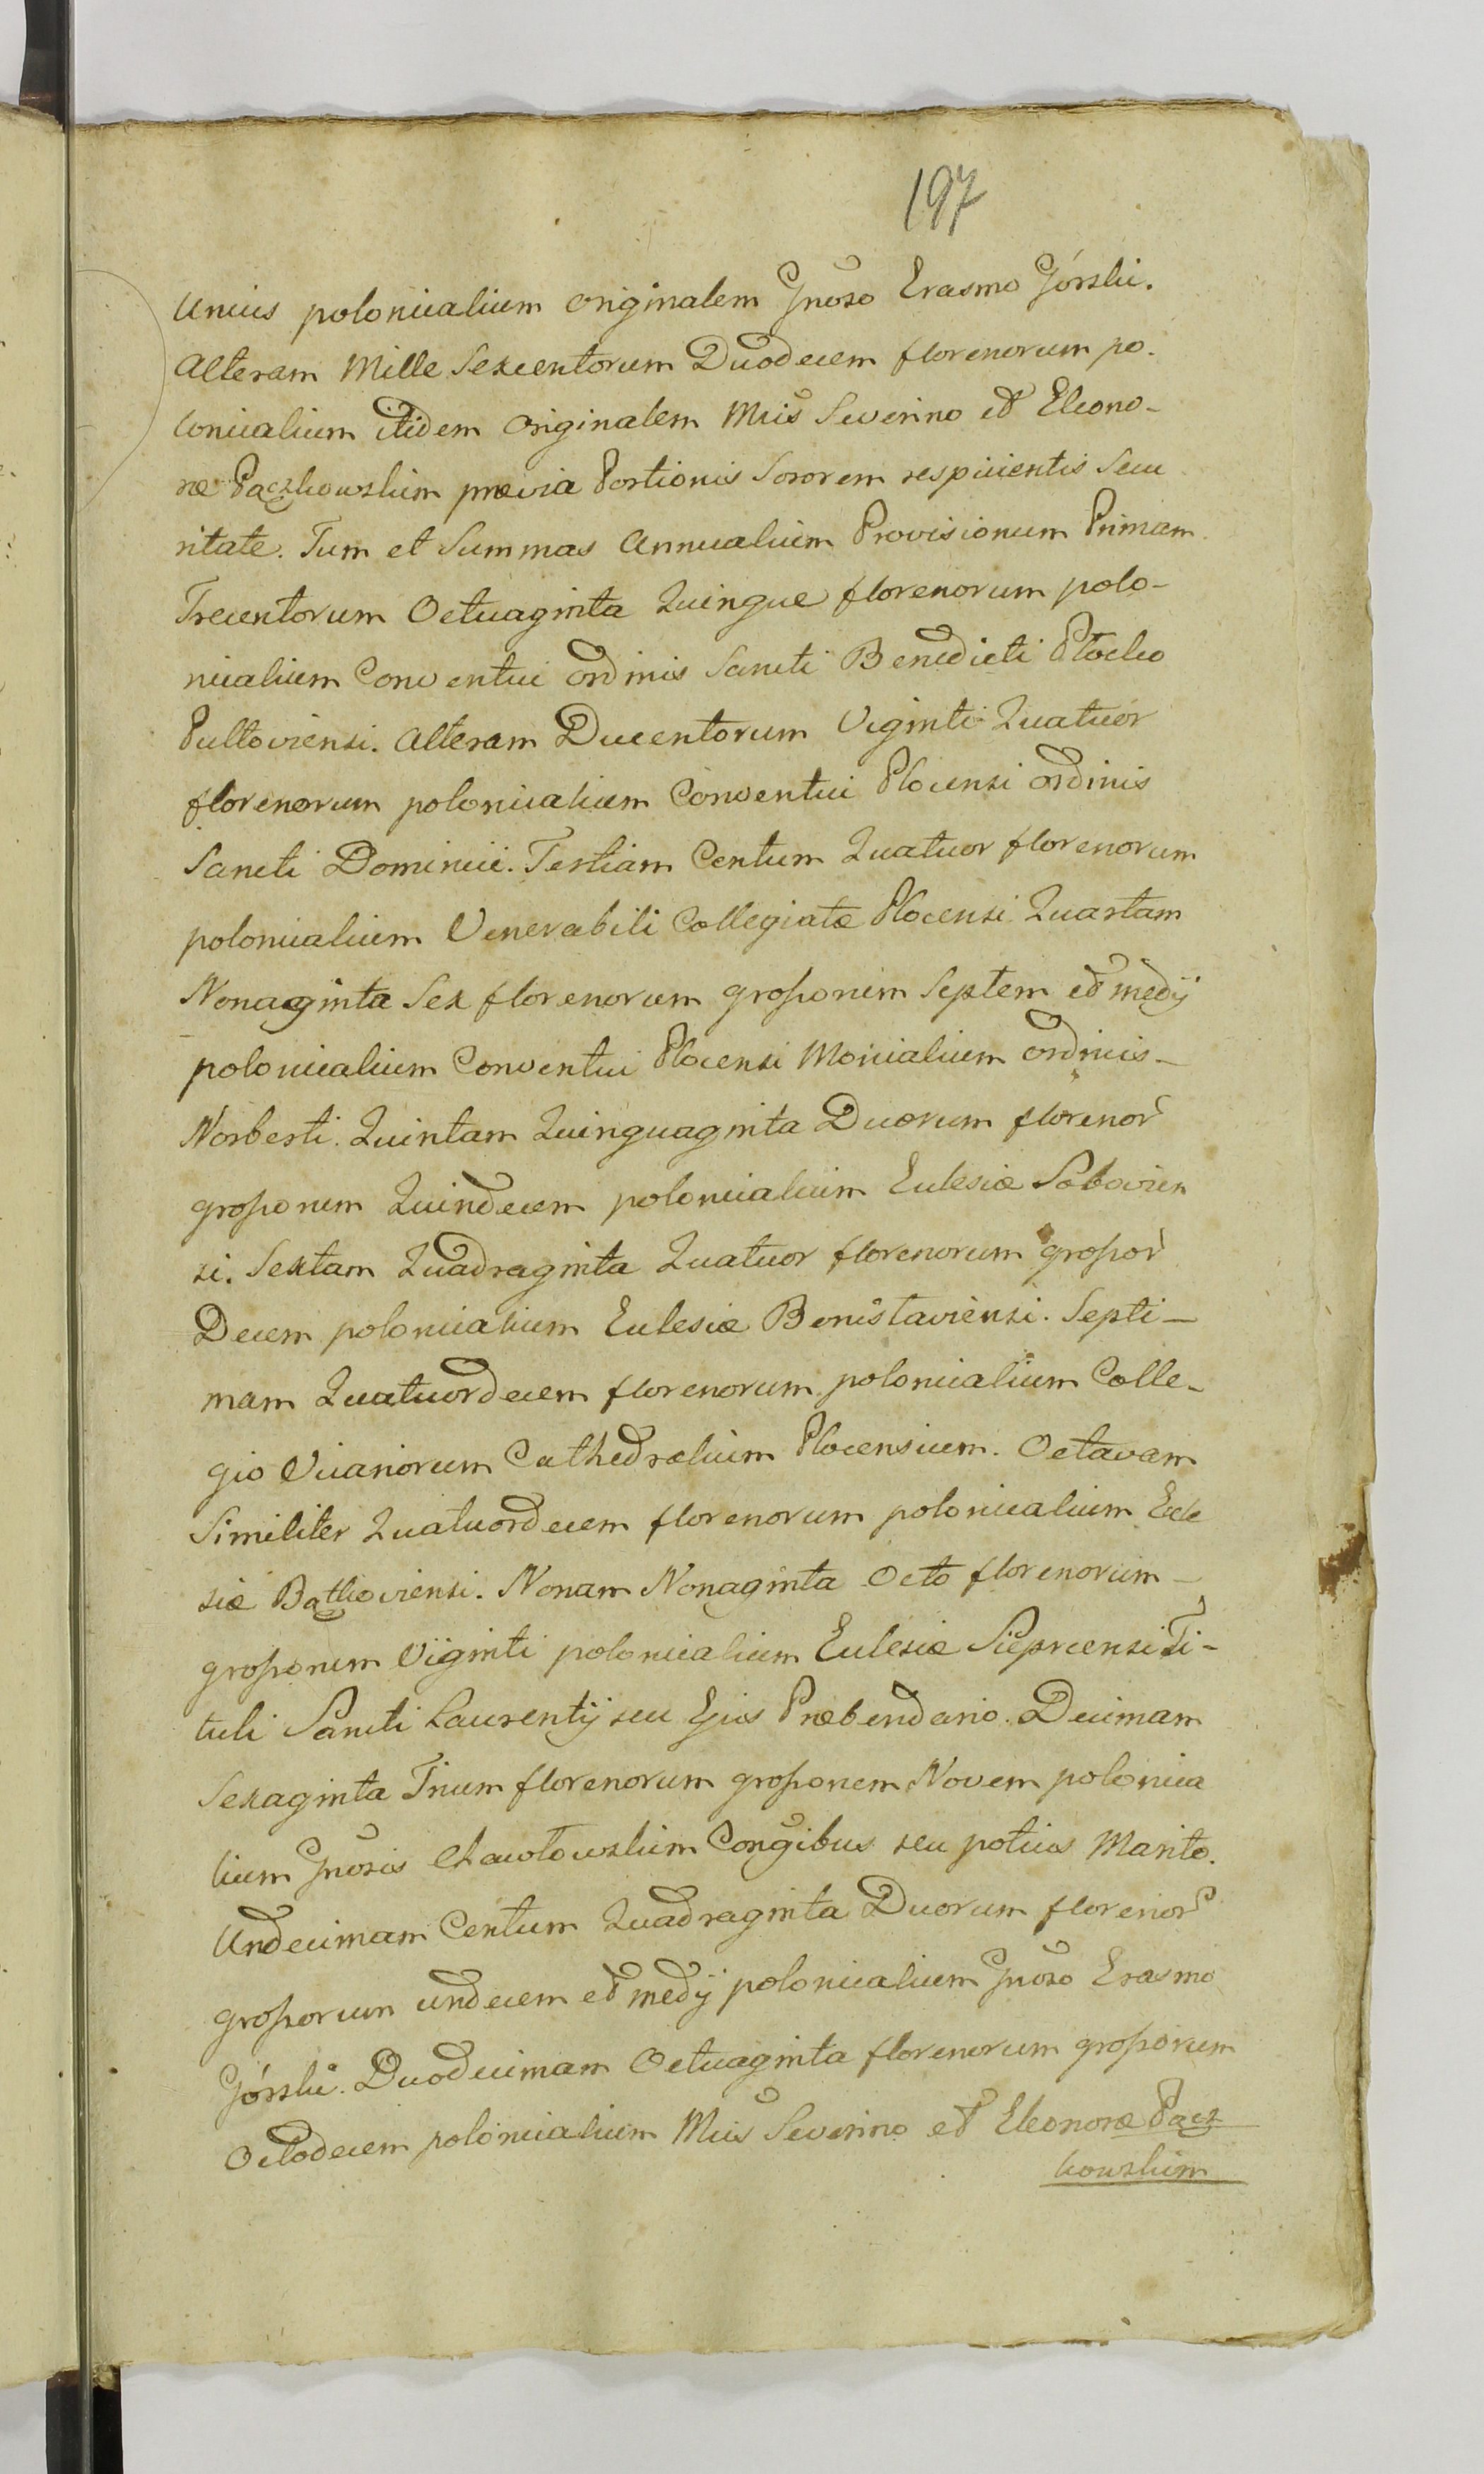 197
Unius polonicalium originalem Gnoso Erasmo Górski.
Alteram Mille Sexcentorum Duodecem florenorum po-
lonicalium itidem originalem Mcis Severino et Eleono-
ræ Paczkowskim prævia Portionis Sororem respicientis Secu
ritate. Tum et Summas Annualium Provisionum Primam
Trecentorum Octuaginta Quinque florenorum polo-
nicalium Conventui ordinis Sancti Benedicti Płocko
Pultoviensi. Alteram Ducentorum Viginti Quatuor
florenorum polonicalium Conventui Plocensi ordinis
Sancti Dominici. Tertiam Centum Quatuor florenorum
polonicalium Venerabili Collegiatæ Plocensi Quartam
Nonaginta Sex florenorum grossorum Septem et medij
polonicalium Conventui Plocensi Monialium ordinis-
Norberti. Quintam Quinquaginta Duorum florenor
grossorum Quindecem polonicalium Eclesiæ Sobovien
si. Sextam Quadraginta Quatuor florenorum grossor
Decem polonicalium Eclesiæ Bonislaviensi. Septi-
mam Quatuordecem florenorum polonicalium Colle-
gio Vicariorum Cathedralium Plocensium. Octavam
Similiter Quatuordecem florenorum polonicalium Ecle
siæ Bądkoviensi. Nonam Nonaginta Octo florenorum-
grossorum Viginti polonicalium Eclesiæ Sieprcensi Ti-
tuli Sancti Laurentij seu Ejus Præbendario. Decimam
Sexaginta Trium florenorum grossorum Novem polonica
lium Gnosis Chawłowskim Conjgibus seu potius Marito.
Undecimam Centum Quadraginta Duorum florenor
grossorum undecem et medij polonicalium Gnoso Erasmo
Górski. Duodecimam Octuaginta florenorum grossorum
Octodecem polonicalium Mcis Severino et Eleonoræ Pacz
kowskim